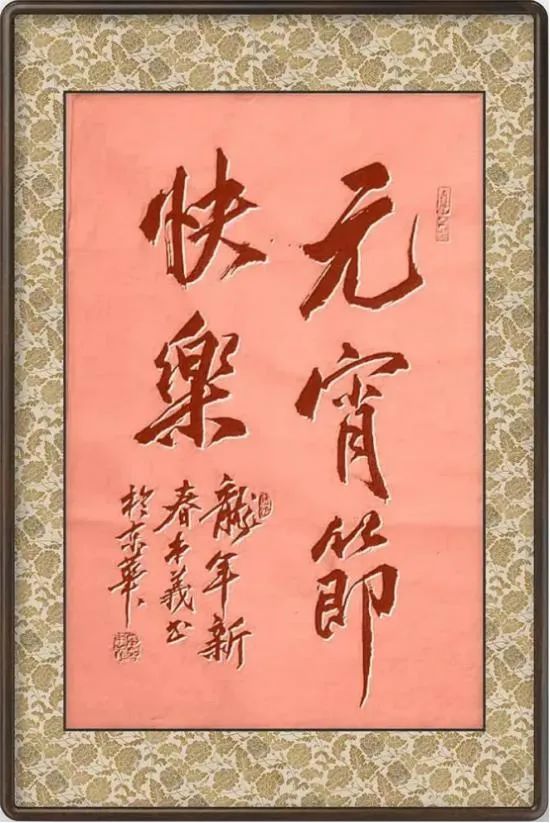 元宵節
快樂
龍年新
春本義书
於京華